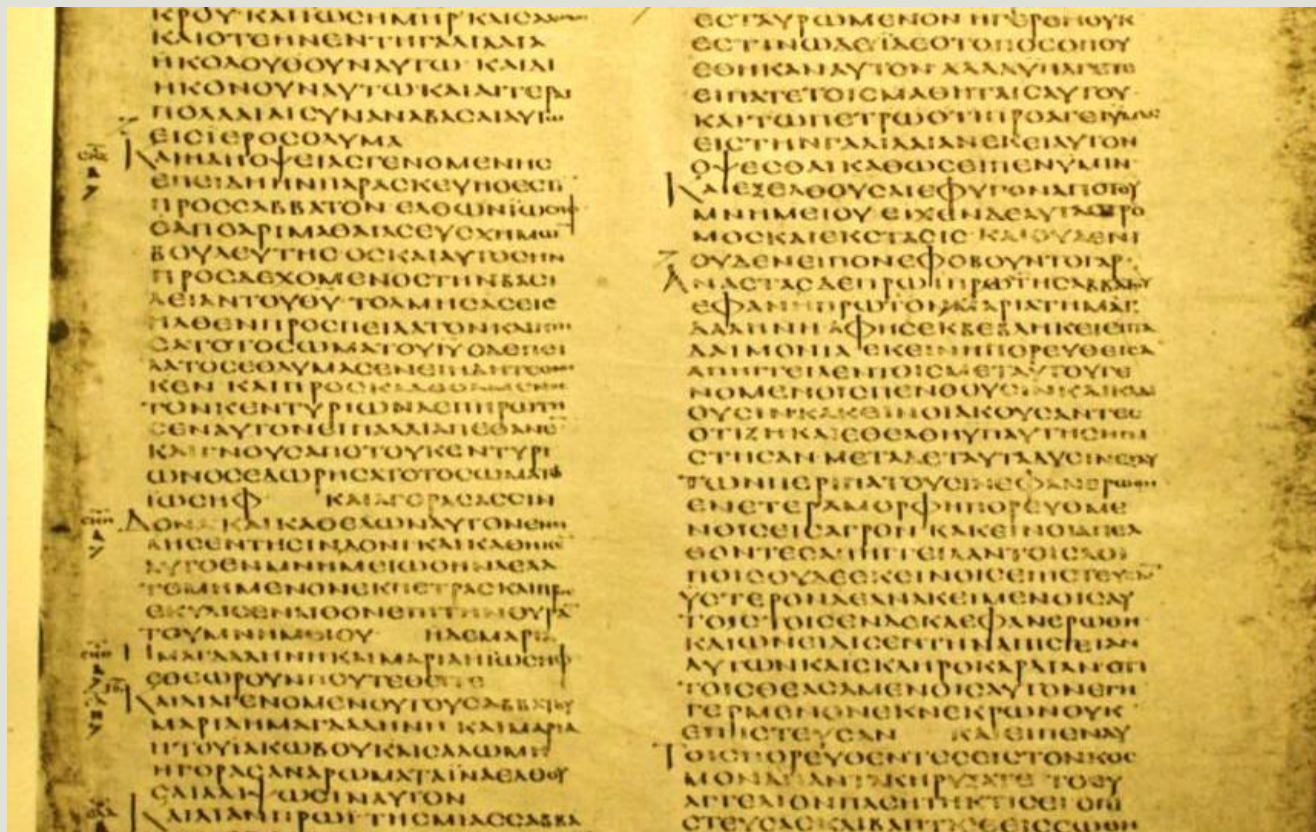 ΚΑΙΟΤΕΗΝΕΝΤΗΓΑΛΙΛΑΙΑ
ΗΚΟΛΟΥΘΟΥΝΑΥΤΩ ΚΑΙΔΙ
ΗΚΟΝΟΥΝΑΥΤΩΚΑΙΑΙΤΕΡΑΙ
ΠΟΛΛΑΙΑΙϹΥΝΑΝΑΒΑϹΑΙΑΥΤΩ
ΕΙϹΙΕΡΟϹΟΛΥΜΑ
ΚΑΙΗΔΗΟΨΕΙΑϹΓΕΝΟΜΕΝΗϹ
ΕΠΕΙΔΗΗΝΠΑΡΑϹΚΕΥΗΟΕϹΤΙ
ΠΡΟϹϹΑΒΒΑΤΟΝ ΕΛΘΩΝΪΩϹΗΦ
ΟΑΠΟΑΡΙΜΑΘΑΙΑϹΕΥϹΧΗΜΩ
ΒΟΥΛΕΥΤΗϹΟϹΚΑΙΑΥΤΟϹΗΝ
ΠΡΟϹΔΕΧΟΜΕΝΟϹΤΗΝΒΑϹΙ
ΛΕΙΑΝΤΟΥΘΥ ΤΟΛΜΗϹΑϹΕΙϹ
ΗΛΘΕΝΠΡΟϹΠΕΙΛΑΤΟΝΚΑΙΗΤΗ
ϹΑΤΟΤΟϹΩΜΑΤΟΥΙΥΟΔΕΠΕΙ
ΛΑΤΟϹΕΘΑΥΜΑϹΕΝΕΙΗΔΗΤΕΘΝΗ
ΚΕΝ ΚΑΙΠΡΟϹΚΑΛΕϹΑΜΕΝΟϹ
ΤΟΝΚΕΝΤΥΡΙΩΝΑΕΠΗΡΩΤΗ
ϹΕΝΑΥΤΟΝΕΙΠΑΛΑΙΑΠΕΘΑΝΕ
ΚΑΙΓΝΟΥϹΑΠΟΤΟΥΚΕΝΤΥΡΙ
ΩΝΟϹΕΔΩΡΗϹΑΤΟΤΟϹΩΜΑΤΩ
ΙΩϹΗΦ ΚΑΙΑΓΟΡΑϹΑϹϹΙΝ
ΔΟΝΑ ΚΑΙΚΑΘΕΛΩΝΑΥΤΟΝΕΝΕΙ
ΛΗϹΕΝΤΗϹΙΝΔΟΝΙΚΑΙΚΑΘΗΚΕ
ΑΥΤΟΕΝΜΝΗΜΕΙΩΟΗΝΛΕΛΑ
ΤΟΜΗΜΕΝΟΝΕΚΠΕΤΡΑϹΚΑΙΠΡΟϹ
ΕΚΥΛΙϹΕΝΛΙΘΟΝΕΠΙΤΗΝΘΥΡΑ
ΤΟΥΜΝΗΜΕΙΟΥ ΗΔΕΜΑΡΙΑ
ΗΜΑΓΔΑΛΗΝΗΚΑΙΜΑΡΙΑΗΙΩϹΗΦ
ΕΘΕΩΡΟΥΝΠΟΥΤΕΘΕΙΤΕ
ΚΑΙΔΙΑΓΕΝΟΜΕΝΟΥΤΟΥϹΑΒΒΑΤΟΥ
ΜΑΡΙΑΗΜΑΓΔΑΛΗΝΗ ΚΑΙΜΑΡΙΑ
ΗΤΟΥΙΑΚΩΒΟΥΚΑΙϹΑΛΩΜΗ
ΗΓΟΡΑϹΑΝΑΡΩΜΑΤΑΪΝΑΕΛΘΟΥ
ϹΑΙΑΛΙΨΩϹΙΝΑΥΤΟΝ
ΚΑΙΛΙΑΝΠΡΩΙΤΗϹΜΙΑϹϹΑΒΒΑ
ΕϹΤΑΥΡΩΜΕΝΟΝ ΗΓΕΡΘΗΟΥΚ
ΕϹΤΙΝΩΔΕΪΔΕΟΤΟΠΟϹΟΠΟΥ
ΕΘΗΚΑΝΑΥΤΟΝ ΑΛΛΑΥΠΑΓΕΤΕ
ΕΙΠΑΤΕΤΟΙϹΜΑΘΗΤΑΙϹΑΥΤΟΥ
ΚΑΙΤΩΠΕΤΡΩΟΤΙΠΡΟΑΓΕΙΥΜΑϹ
ΕΙϹΤΗΝΓΑΛΙΛΑΙΑΝΕΚΕΙΑΥΤΟΝ
ΟΨΕϹΘΑΙΚΑΘΩϹΕΙΠΕΝΥΜΙΝ
ΚΑΙΕΞΕΛΘΟΥϹΑΙΕΦΥΓΟΝΑΠΟΤΟΥ
ΜΝΗΜΕΙΟΥ ΕΙΧΕΝΔΕΑΥΤΑϹΤΡΟ
ΜΟϹΚΑΙΕΚϹΤΑϹΙϹ ΚΑΙΟΥΔΕΝΙ
ΟΥΔΕΝΕΙΠΟΝΕΦΟΒΟΥΝΤΟΓΑΡ
ΑΝΑϹΤΑϹΔΕΠΡΩΪΠΡΩΤΗϹΑΒΒΑΤΟΥ
ΕΦΑΝΗΠΡΩΤΟΝΜΑΡΙΑΤΗΜΑΓ
ΔΑΛΗΝΗ ΑΦΗϹΕΚΒΕΒΛΗΚΕΙΕΠΤΑ
ΔΑΙΜΟΝΙΑ ΕΚΕΙΝΗΠΟΡΕΥΘΕΙϹΑ
ΑΠΗΓΓΕΙΛΕΝΤΟΙϹΜΕΤΑΥΤΟΥΓΕ
ΝΟΜΕΝΟΙϹΠΕΝΘΟΥϹΙΝΚΑΙΚΛΑΙ
ΟΥϹΙΝΚΑΚΕΙΝΟΙΑΚΟΥϹΑΝΤΕϹ
ΟΤΙΖΗΚΑΙΕΘΕΑΘΗΥΠΑΥΤΗϹΗΠΙ
ϹΤΗϹΑΝ ΜΕΤΑΔΕΤΑΥΤΑΔΥϹΙΝΕΞΑΥ
ΤΩΝΠΕΡΙΠΑΤΟΥϹΙΝΕΦΑΝΕΡΩΘΗ
ΕΝΕΤΕΡΑΜΟΡΦΗΠΟΡΕΥΟΜΕ
ΝΟΙϹΕΙϹΑΓΡΟΝ ΚΑΚΕΙΝΟΙΑΠΕΛ
ΘΟΝΤΕϹΑΠΗΓΓΕΙΛΑΝΤΟΙϹΛΟΙ
ΠΟΙϹΟΥΔΕΕΚΕΙΝΟΙϹΕΠΙϹΤΕΥϹΑΝ
ΥϹΤΕΡΟΝΔΕΑΝΑΚΕΙΜΕΝΟΙϹΑΥ
ΤΟΙϹΤΟΙϹΕΝΔΕΚΑΕΦΑΝΕΡΩΘΗ
ΚΑΙΩΝΕΙΔΙϹΕΝΤΗΝΑΠΙϹΤΕΙΑΝ
ΑΥΤΩΝΚΑΙϹΚΛΗΡΟΚΑΡΔΙΑΝΟΤΙ
ΤΟΙϹΘΕΑϹΑΜΕΝΟΙϹΑΥΤΟΝΕΓΗ
ΓΕΡΜΕΝΟΝΕΚΝΕΚΡΩΝΟΥΚ
ΕΠΙϹΤΕΥϹΑΝ ΚΑΙΕΙΠΕΝΑΥ
ΤΟΙϹΠΟΡΕΥΘΕΝΤΕϹΕΙϹΤΟΝΚΟϹ
ΜΟΝΑΠΑΝΤΑΚΗΡΥΞΑΤΕ ΤΟΕΥ
ΑΓΓΕΛΙΟΝΠΑϹΗΤΗΚΤΙϹΕΙ ΟΠΙ
ϹΤΕΥϹΑϹΚΑΙΒΑΠΤΙϹΘΕΙϹϹΩΘΗ